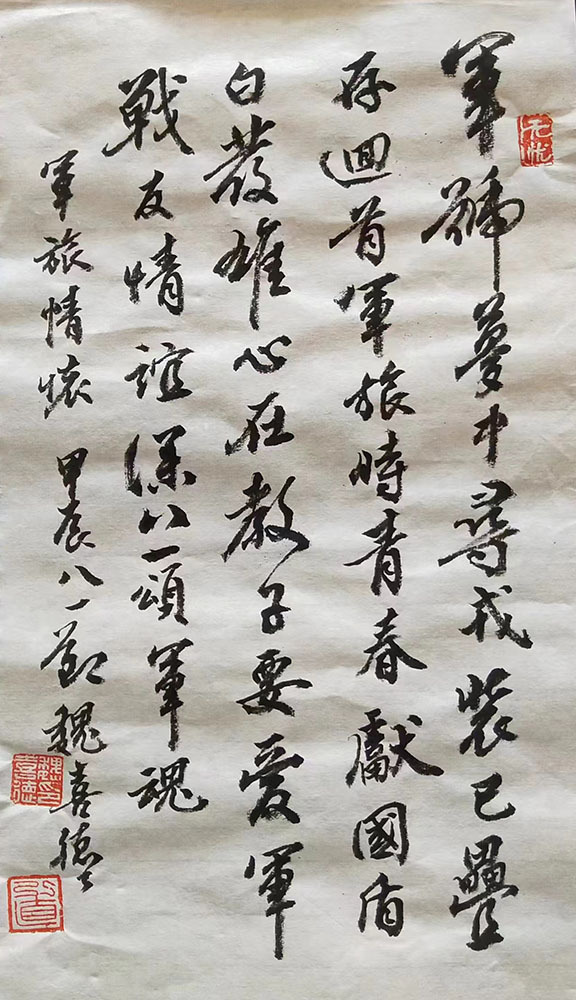 軍號夢中尋戎裝已疊
存迴首軍旅時青春獻國盾
白發雄心在教子要愛軍
戰友情誼深八一頌軍魂
軍旅情懷 甲辰八一節魏喜德